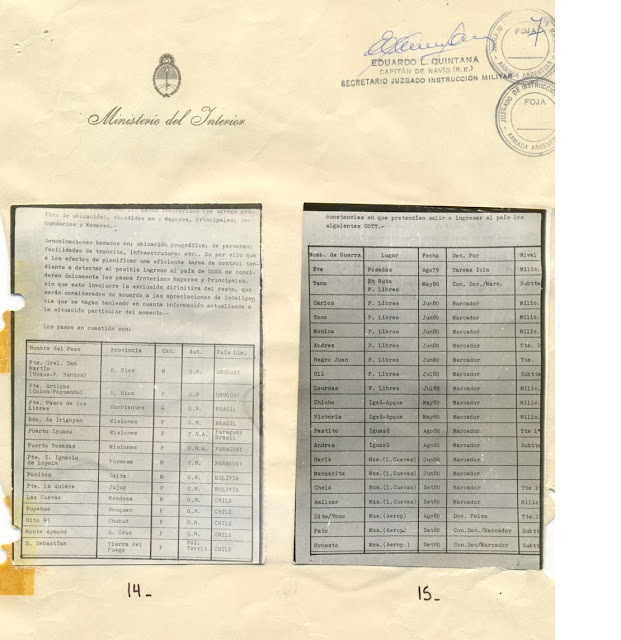 FOJA
7
ARMADA ARGENTINA
EDUARDO L. QUINTANA
CAPITÁN DE NAVÍO (R.E.)
SECRETARIO JUZGADO INSTRUCCIÓN MILITAR
JUZGADO DE INSTRUCCIÓN
FOJA
ARMADA ARGENTINA
Ministerio del Interior
fico de ubicación), divididos en : Mayores, Principales, Se-
cundarios y Menores.
Denominaciones basadas en: ubicación geográfica; de personas,
facilidades de tránsito, infraestructura, etc.. Es por ello que
a los efectos de planificar una eficiente tarea de control ten-
diente a detectar el posible ingreso al país de OOSS se consi-
derán únicamente los pasos fronterizos Mayores y Principales,
sin que esto involucre la exclusión definitiva del resto, que
serán considerados de acuerdo a las apreciaciones de inteligen
cia que se hagan teniendo en cuenta información actualizada a
la situación particular del momento.-
Los pasos en cuestión son:
Nombre del Paso Provincia Cat. Aut. País Lím.
Pte. Gral. San
Martín E. Ríos M G.N. URUGUAY
(Unzue-F. Bentos)
Pte. Artigas
(Colon-Paysandú) E. Ríos P G.N URUGUAY
Pte. Pasos de los
Libres Corrientes G.N. BRASIL
Bdo. de Irigoyen Misiones P G.N. BRASIL
Puerto Iguazu Misiones P P.N.A. Paraguay
Brasil
Puerto Posadas Misiones P P.N.A. PARAGUAY
Pte. S. Ignacio
de Loyola Formosa M G.N. PARAGUAY
Pocitos Salta M G.N. BOLIVIA
Pte. La Quiaca Jujuy P G.N. BOLIVIA
Las Cuevas Mendoza M G.N. CHILE
Puyehue Neuquen P G.N. CHILE
Hito 45 Chubut P G.N. CHILE
Monte Aymond S. Cruz P G.N. CHILE
S. Sebastían Tierra del P Pol. CHILE
Fuego Territ.
14-
cunstancias en que pretendían salir o ingresar al país los
siguientes OOTT.-
Nomb. de Guerra Lugar Fecha Det. Por Nivel
Eva Posadas Ago79 Tareas Icia Milic.
Tano En Ruta May80 Con. Doc./Marc. Subtte
P. Libres
Carlos P. Libres Jun80 Marcador Milic.
Tono P. Libres Jun80 Marcador Milic.
Monica P. Libres Jun80 Marcador Milic.
Andres P. Libres Jun80 Marcador Tte.
Negro Juan P. Libres Jun80 Marcador Tte.
Oli P. Libres Jul80 Marcador Subtte
Lourdes P. Libres Jul80 Marcador Milic.
Chicho Igzú-Apque May80 Marcador Milic.
Victoria Igzú-Apque May80 Marcador Milic.
Pastito Iguazú Ago80 Marcador Tte 1º
Andrea Iguazú Ago80 Marcador Subtte
María Mza.(L.Cuevas) Jun80 Marcador Milic.
Manzanita Mza.(L.Cuevas) Jun80 Marcador Milic.
Chela Mza.(L.Cuevas) Set80 Marcador Tte
Amilcar Mza.(L.Cuevas) Set80 Marcador Milic
Dito/Tono Mza.(Aerop) Ago80 Doc. Falsa Tte.
Pato Mza.(Aerop) Set80 Con.Doc./Marcador Subtt
Ernesto Mza.(Aerop.) Set80 Con.Doc/Marcador Subtt
15-